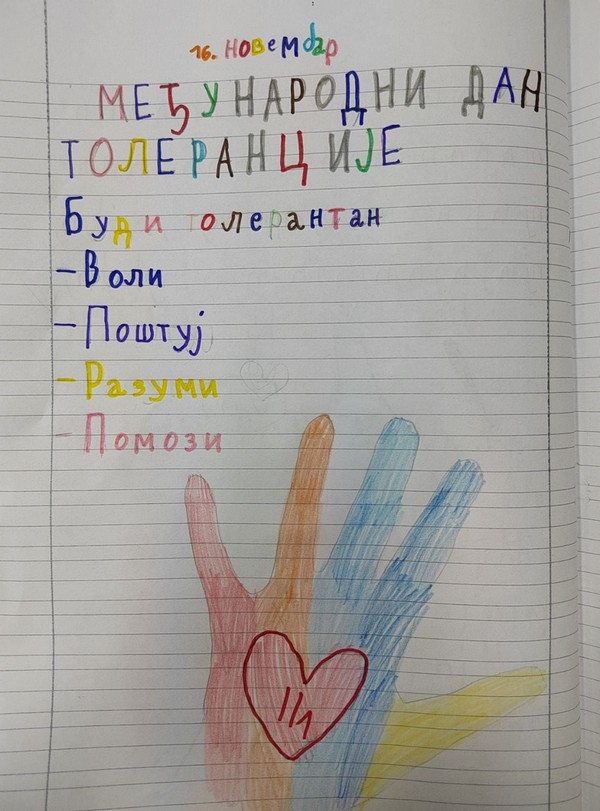 16. новембар
МЕЂУНАРОДНИ ДАН
ТОЛЕРАНЦИЈЕ
Буди толерантан
- Воли
- Поштуј
- Разуми
- Помози
I/1